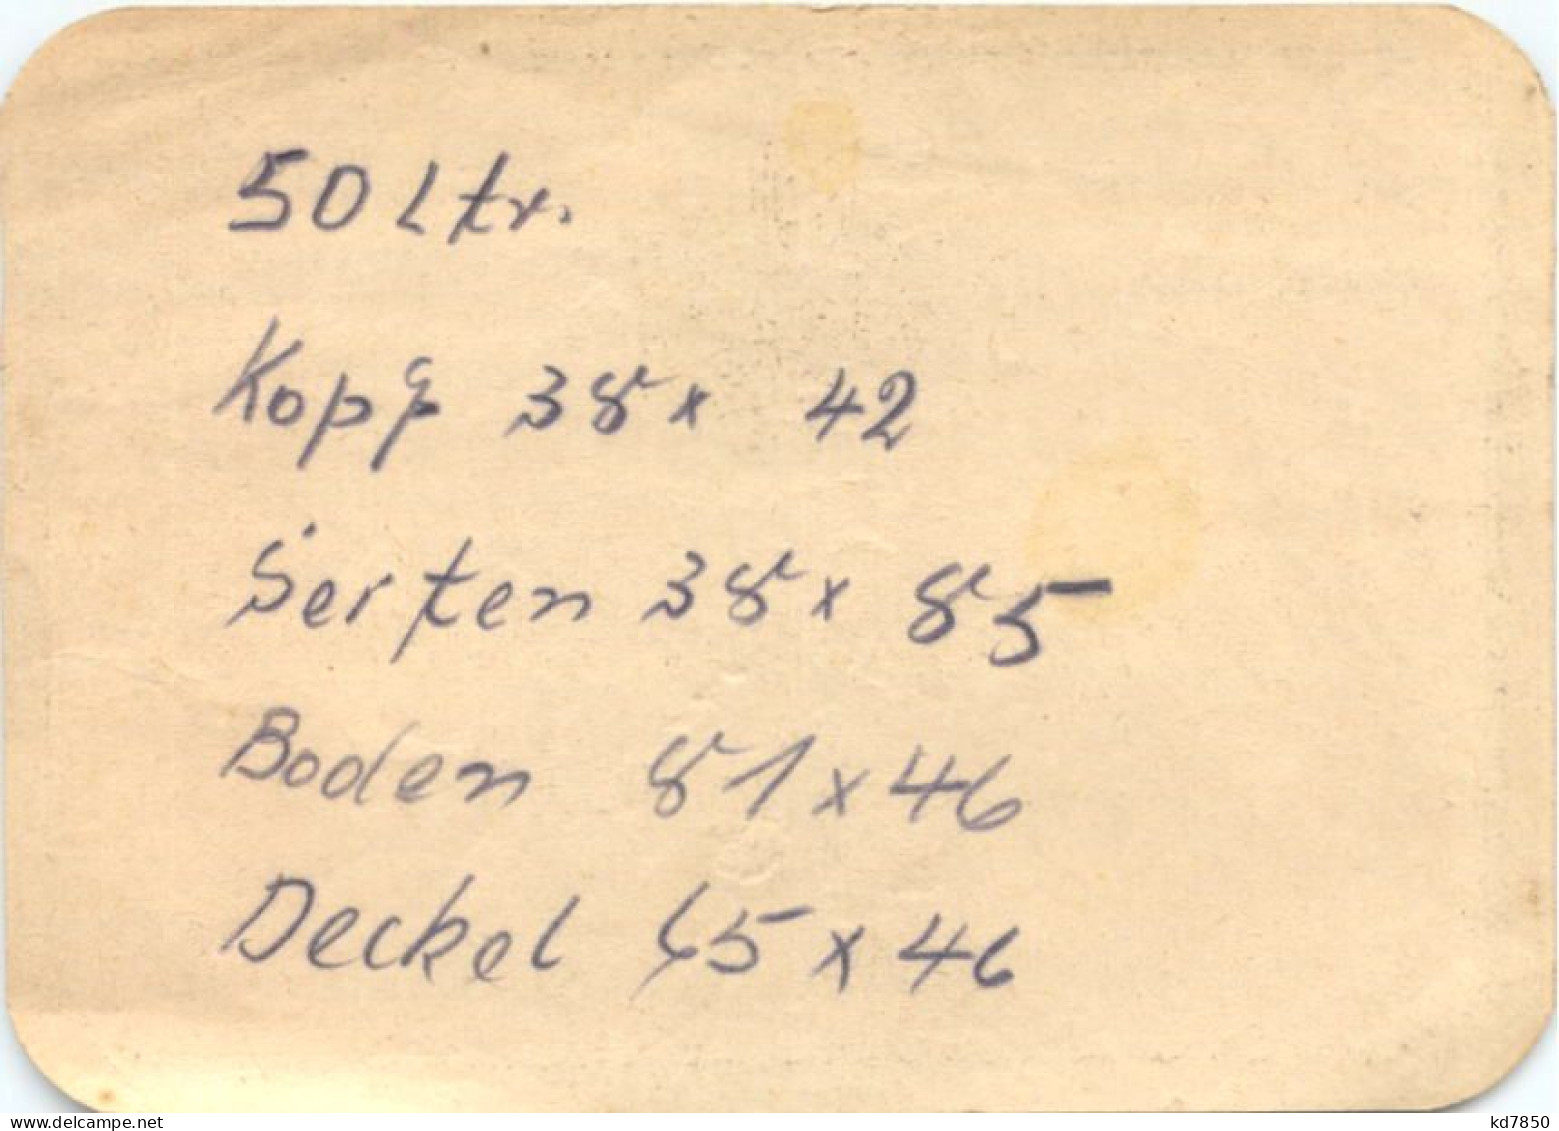 50 Ltr.
Kopf 38 x 42
Seiten 38 x 85
Boden 81 x 46
Deckel 45 x 46
delcampe.net
kd7850